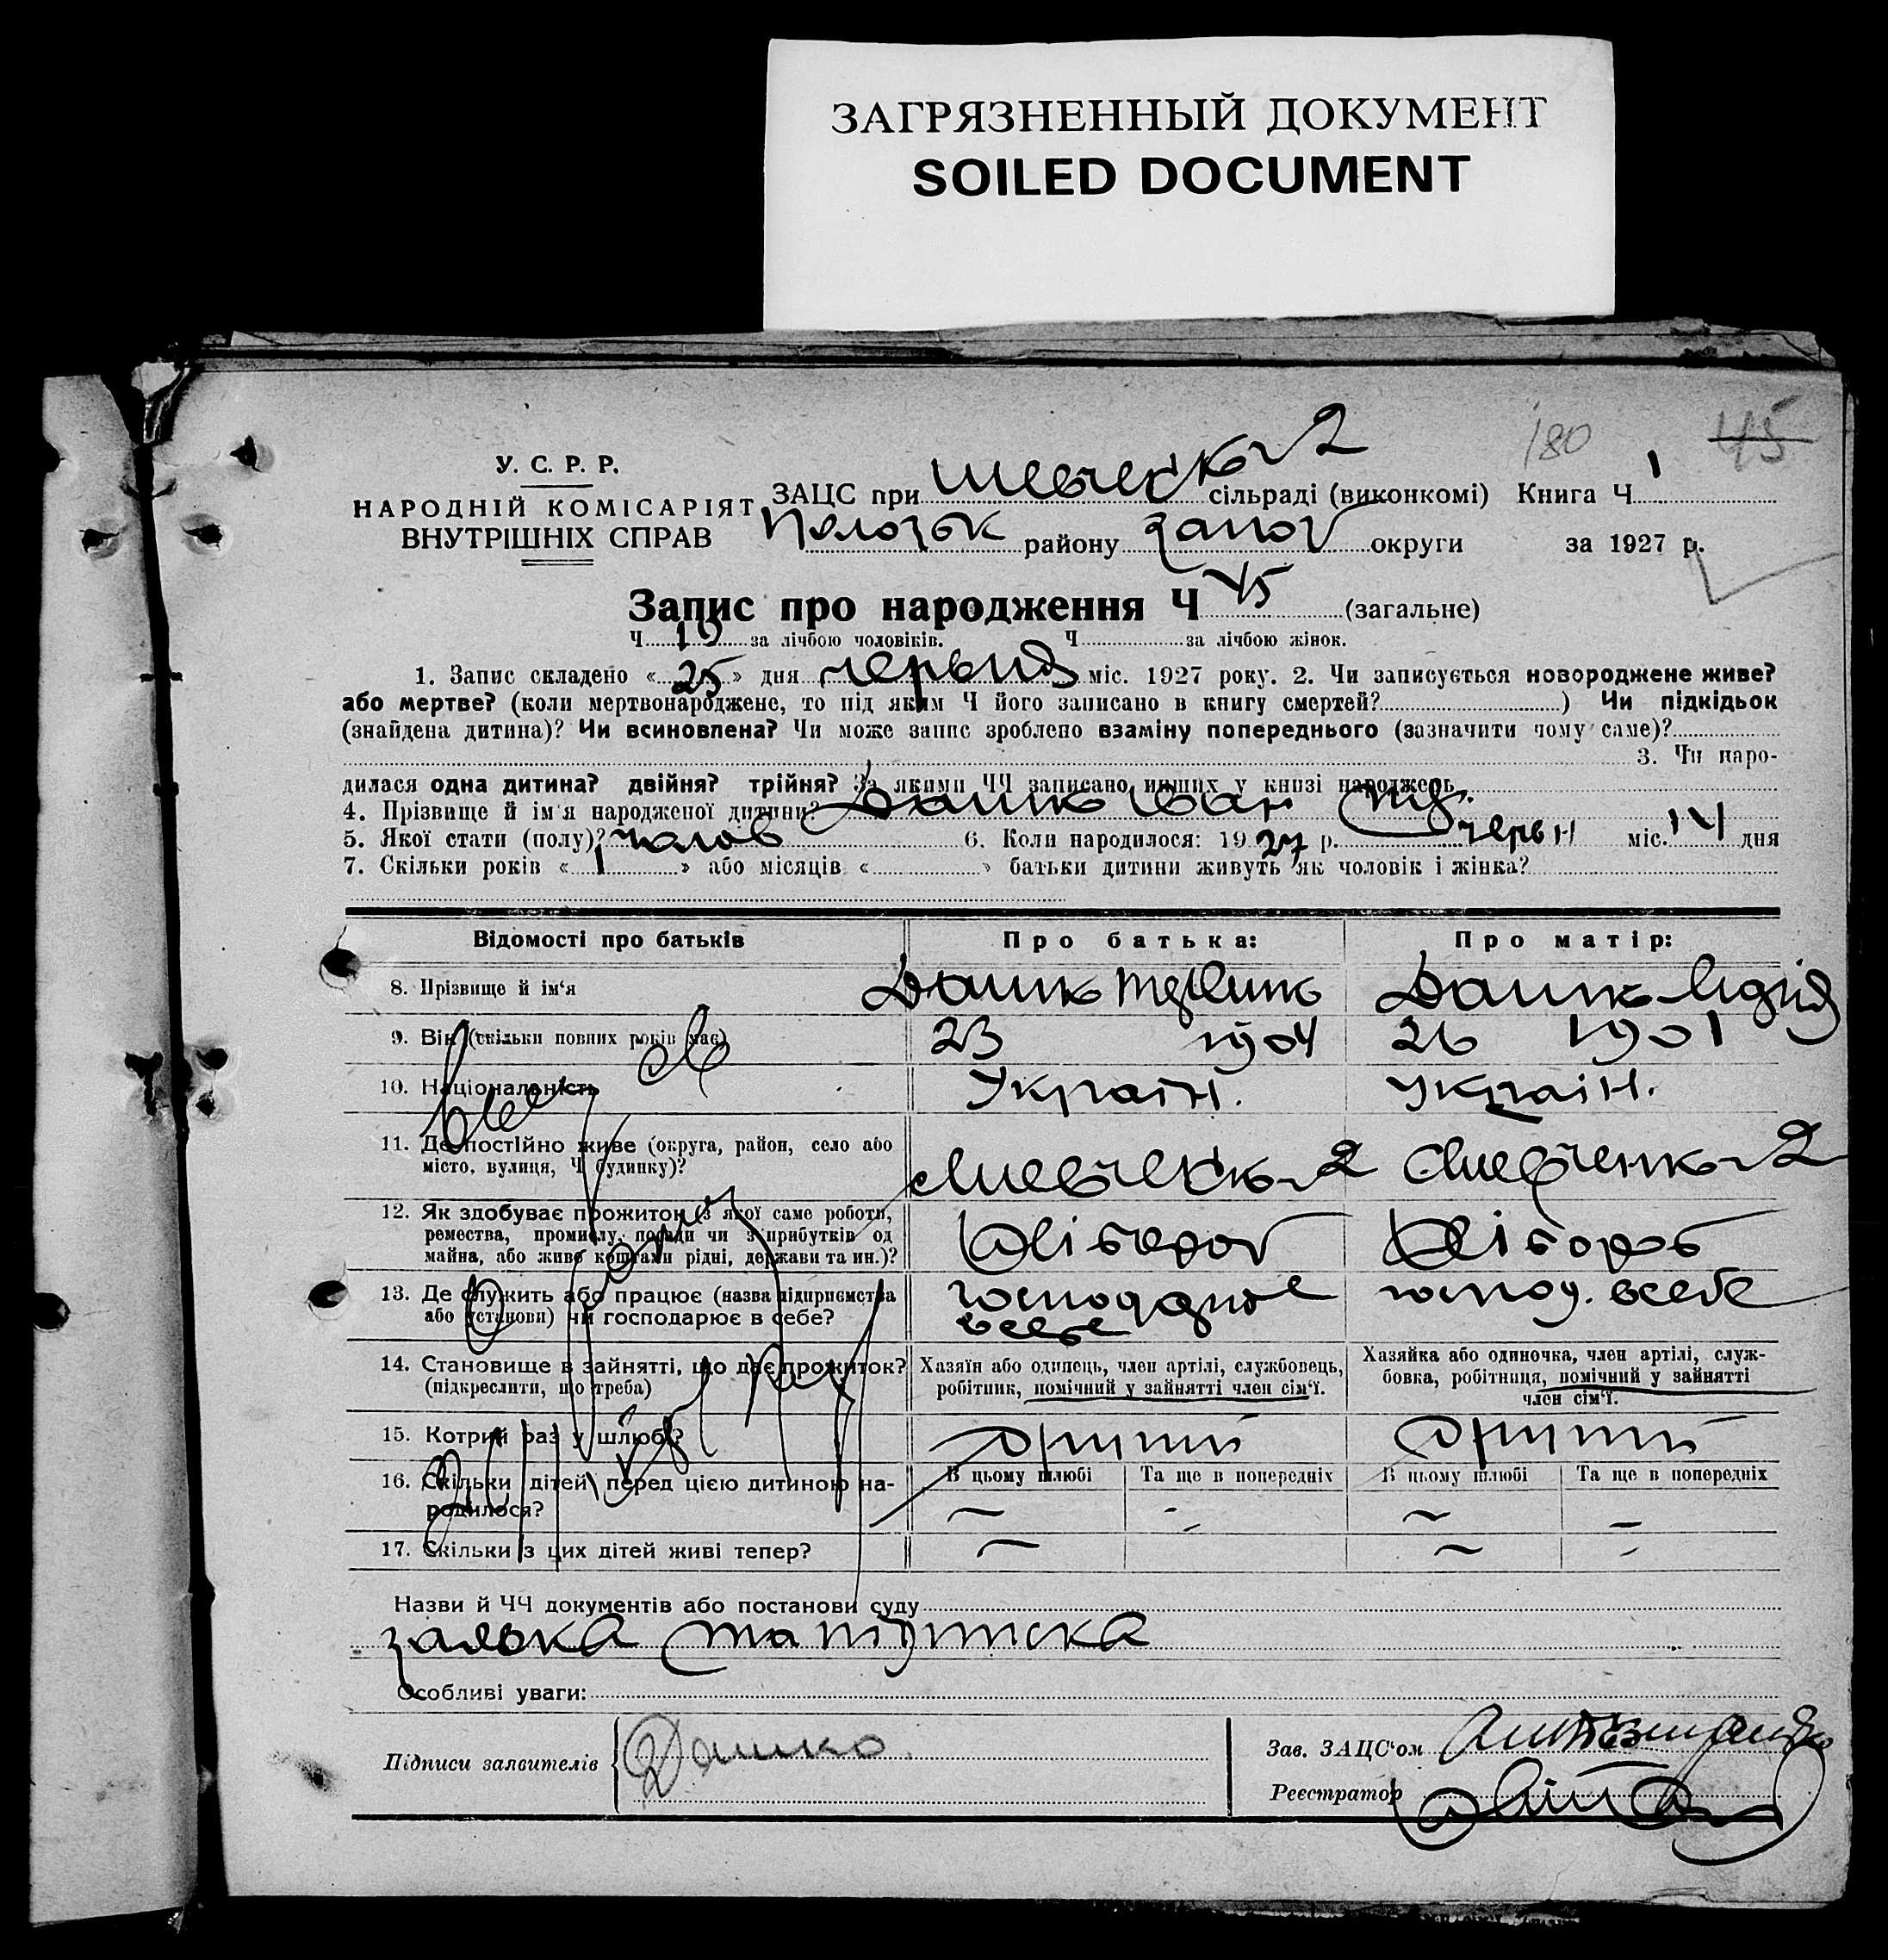 ЗАГРЯЗНЕННЫЙ ДОКУМЕНТ
SOILED DOCUMENT
180 45
У. С. Р. Р.
НАРОДНІЙ КОМІСАРІЯТ
ВНУТРІШНІХ СПРАВ
ЗАЦС при Шевченк 2 сільраді (виконкомі) Книга Ч 1
району Запоr округи за 1927 р.
Запис про народження Ч 45 (загальне)
Ч 19 за лічбою чоловіків. Ч за лічбою жінок.
1. Запис складено « 25 » дня червня міс. 1927 року. 2. Чи записується новороджене живе?
або мертве? (коли мертвонароджене, то під яким Ч його записано в книгу смертей? ) Чи підкідьок
(знайдена дитина)? Чи всиновлена? Чи може запис зроблено взаміну попереднього (зазначити чому саме)?
3. Чи наро-
дилася одна дитина? двійня? трійня? За якими ЧЧ записано инших у книзі народжень
4. Прізвище й ім'я народженої дитини? Дашко Іван
5. Якої стати (полу)? чолов 6. Коли народилося: 1927 р. червн міс. 14 дня
7. Скільки років « 1 » або місяців « » батьки дитини живуть як чоловік і жінка?
Відомості про батьків Про батька: Про матір:
8. Прізвище й ім'я Дашко Дашко
9. Вік (скільки повних років має) 23 1904 26 1901
10. Національність Україн. Україн.
11. Де постійно живе (округа, район, село або
місто, вулиця, Ч будинку)? Шевченко 2 Шевченко 2
12. Як здобуває прожиток (з якої саме роботи,
ремества, промислу, посади чи з прибутків од
майна, або живе коштами рідні, держави та ин.)? Хлібороб Хлібороб
13. Де служить або працює (назва підприємства
або установи) чи господарює в себе? всебе господ. всебе
14. Становище в зайнятті, що дає прожиток?
(підкреслити, що треба)
Хазяїн або одинець, член артілі, службовець,
робітник, помічний у зайнятті член сім'ї.
Хазяйка або одиночка, член артілі, служ-
бовка, робітниця, помічний у зайнятті
член сім'ї.
15. Котрий раз у шлюбі? другий другий
16. Скільки дітей перед цією дитиною на-
родилося?
В цьому шлюбі Та ще в попередніх В цьому шлюбі Та ще в попередніх
17. Скільки з цих дітей живі тепер?
Назви й ЧЧ документів або постанови суду
заявка та підписка
Особливі уваги:
Підписи заявителів Дашко
Зав. ЗАЦС'ом
Реєстратор